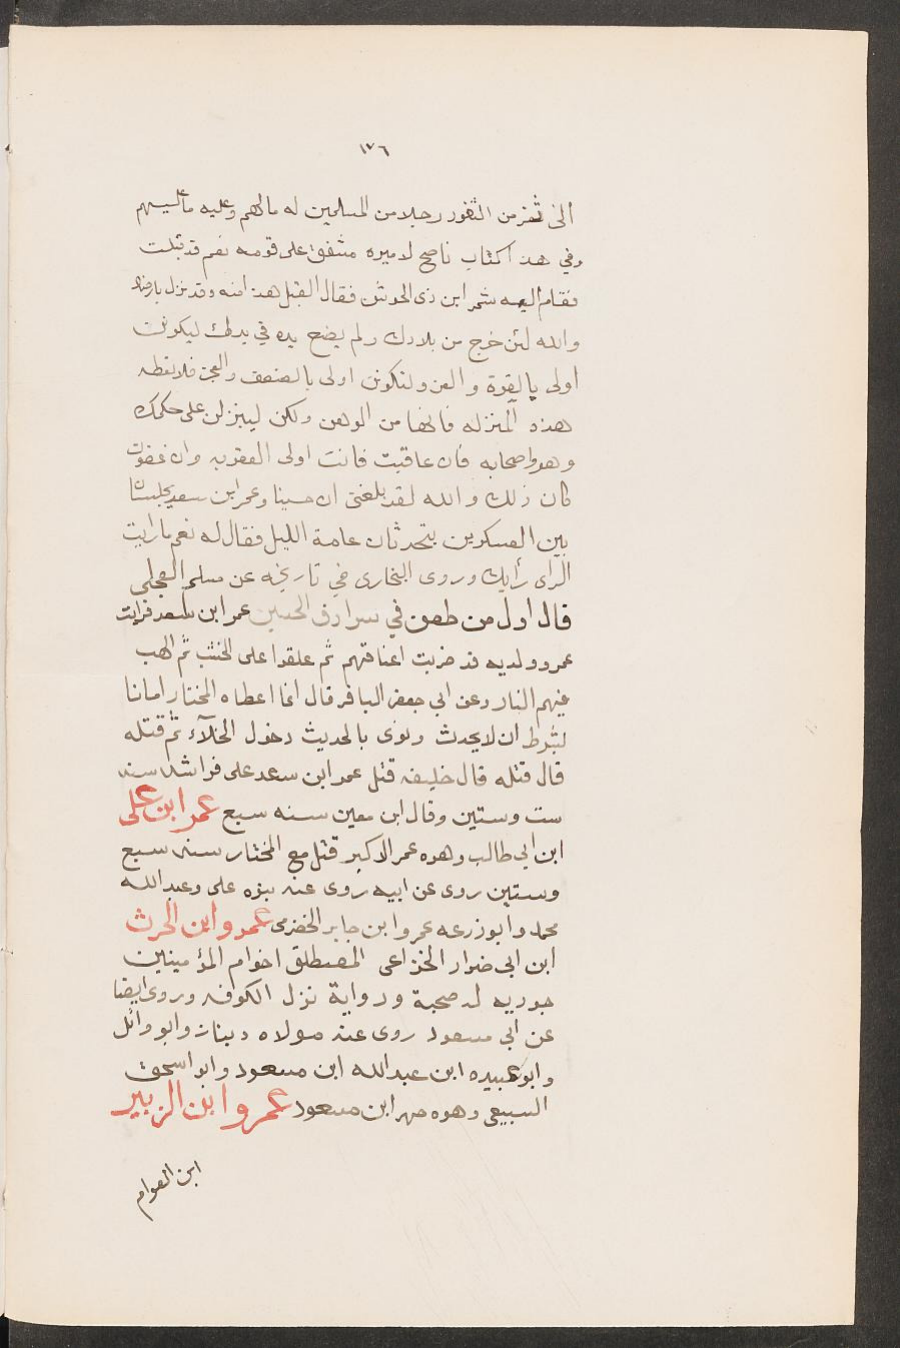 ١٧٦
الى ثغر من الثغور رجلا من المسلمين له مالهم وعليه ما عليهم
وفي هذا كتاب ناصح لاميره مشفق على قومه نعم قد قبلت
فقام اليه شمر ابن ذى الجوشن فقال اتقبل هذا منه وقد نزل بارضك
والله لئن خرج من بلادك ولم يضع يده في يدك ليكونن
اولى بالقوة والعز ولتكونن اولى بالضعف والعجز فلا تعطه
هذه المنزله فانها من الوهن ولكن لينزلن على حكمك
وهو واصحابه فان عاقبت فانت اولى العقوبه وان غفرت
كان ذلك والله لقد بلغنى ان حسينا وعمر ابن سعد يجلسان
بين العسكرين يتحدثان عامة الليل فقال له نعم ما رايت
الراى رأيك وروى البخارى فى تاريخه عن مسلم العجلى
قال اول من طعن في سرادق الحسين عمر ابن سعد فرايت
عمر وولديه قد ضربت اعناقهم ثم علقوا على الخشب ثم الهب
فيهم النار وعن ابي جعفر الباقر قال انما اعطاه المختار امانا
بشرط ان لا يحدث ونوى بالحديث دخول الخلآء ثم قتله
قال قتله قال خليفه قتل عمر ابن سعد على فراشه سنه
ست وستين وقال ابن معين سنه سبع عمر ابن على
ابن ابي طالب وهوه عمر الاكبر قتل مع المختار سنه سبع
وستين روى عن ابيه روى عنه بنوه على وعبد الله
محمد وابو زرعه عمرو ابن جابر الحضرمى عمرو ابن الحرث
ابن ابي ضرار الخزاعى المصطلق اخو ام المؤمينين
جوريه له صحبة ورواية نزل الكوفه وروى ايضا
عن ابي مسعود روى عنه مولاه دينار وابو وائل
وابو عبيده ابن عبد الله ابن مسعود وابو اسحق
السبيعى وهوه صهر ابن مسعود عمرو ابن الزبير
ابن العوام